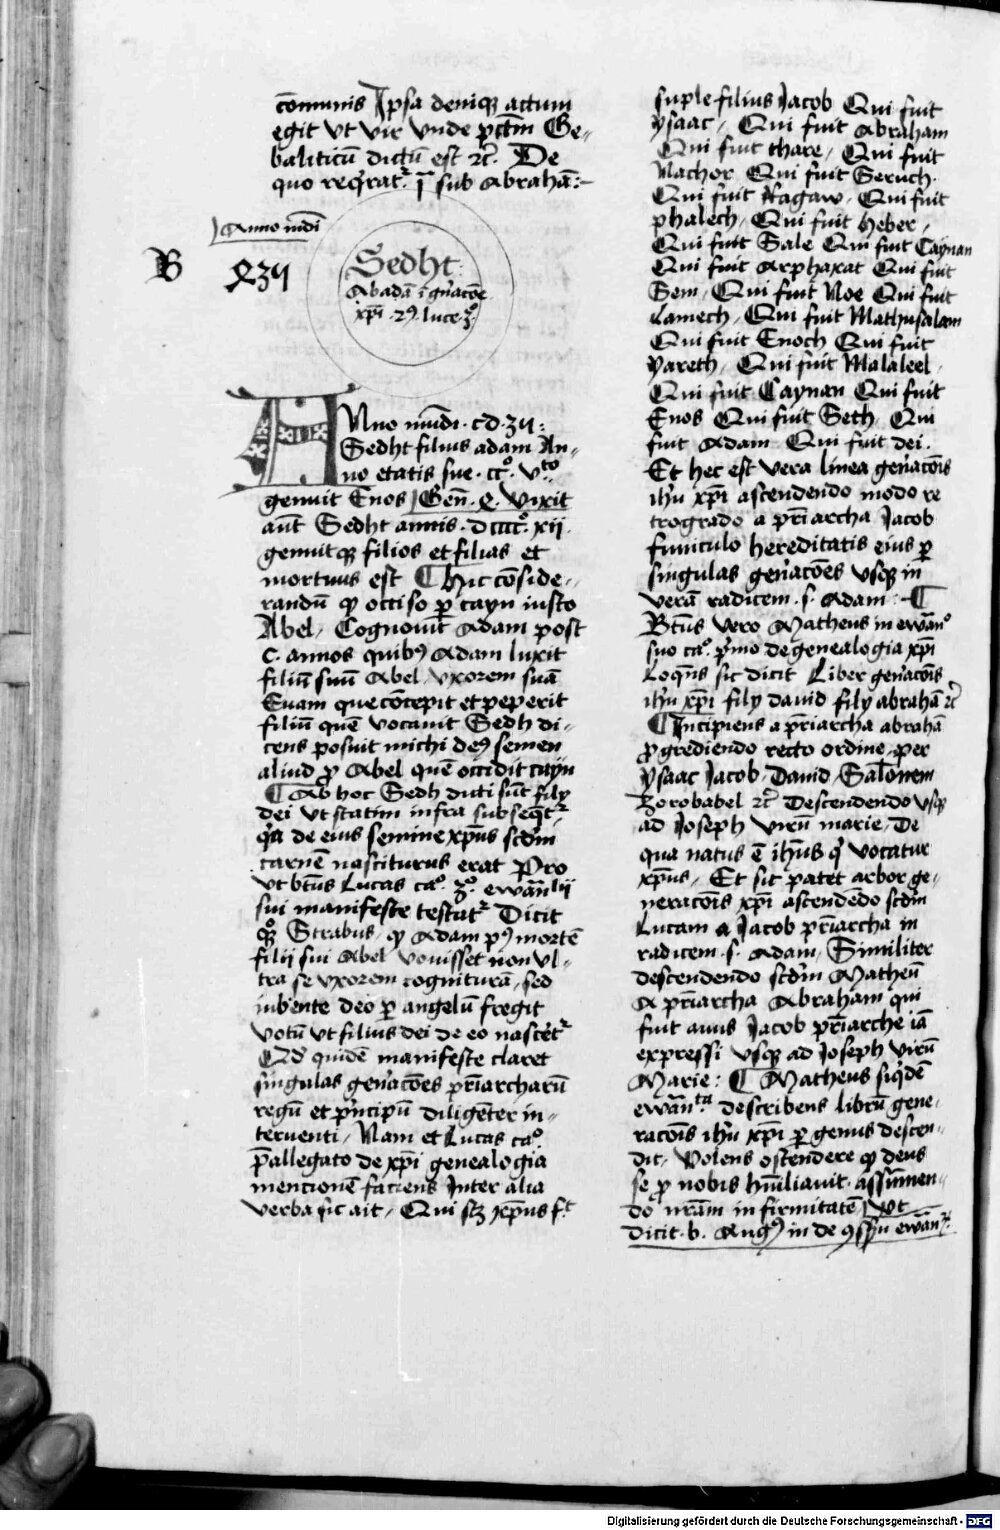 cōmunis Ipsa deniqꝫ actum
egit vt vir vnde pctm̄ Ge-
baliticū dictū est ⁊c̄. De
quo reqͥratʳ. ī sub abrahā:-
Anno mūdi
B
Sedht
Abadā ī gn̄acōe
xp̄i ·⁊· luce·3°
ANno mūdi · cd·
Sedht filius adam An-
no etatis sue · cc°· vto
genuit Enos Gen̄· Vixit
aūt Sedht annis · dcccc° xii
genuitqꝫ filios et filias et
mortuus est ¶ Hic conside-
randū qꝫ occiso ꝑ cayn iusto
Abel, Cognouit Adam post
C· annos quibꝰ Adam luxit
filiū suū Abel, vxorem suā
Euam que cōcepit et peperit
filiū quē vocauit Sedh di-
cens posuit michi deꝰ semen
aliud ꝓ Abel quē occidit cayn
¶ Ab hoc Sedh dicti sūt filij
dei vt statim infra subseqͥtʳ
qͥa de eius semine xp̄us scdm̄
carnē nasciturus erat Pro
vt bt̄us Lucas ca° 3° ewāgelii
sui manifeste testatʳ Dicit
qꝫ° Strabus, qꝫ Adam pꝰ mortē
filii sui Abel vouisset non vl-
tra se vxorem cogniturā, sed
iubente deo ꝑ angelū fregit
votū vt filius dei de eo nascet̄ʳ
Qd̄ quidē manifeste claret
singulas gen̄acōes pr̄iarcharū
regū et pͥncipū diligēter in-
terventi, Nam et Lucas ca°
p̄allegato de xp̄i genealogia
mencionē faciens Inter alia
verba sic ait, Qui scꝫ xp̄us fͭ
suple filius Jacob Qui fuit
ysaac, Qui fuit Abraham
Qui fuit thare, Qui fuit
Nachor Qui fuit Seruch
Qui fuit Ragaw, Qui fuit
phalech, Qui fuit heber,
Qui fuit Sale Qui fuit Caynan
Qui fuit Arphaxat Qui fuit
Sem, Qui fuit Noe Qui fuit
Lamech, Qui fuit Mathusalam
Qui fuit Enoch Qui fuit
yareth, Qui fuit Malaleel
Qui fuit Caynan Qui fuit
Enos Qui fuit Seth, Qui
fuit Adam Qui fuit dei.
Et hec est vera linea gen̄acōis
ih̄u xp̄i ascendendo modo re
trogrado a pr̄iarcha Jacob
funiculo hereditatis eius ꝑ
singulas gen̄acōes vsqꝫ in
verā radicem .s. Adam: ¶
Bt̄us vero Matheus in ewan̄°
suo ca° pͥmo de genealogia xp̄i
Loqn̄s sic dicit Liber gen̄acōis
ih̄u xp̄i filij dauid filij abrahā ⁊c̄
¶ Incipiens a pr̄iarcha abrahā
ꝓgrediendo recto ordine per
ysaac Jacob, Dauid, Salonem
Zorobabel ⁊c̄ Descendendo vsqꝫ
ad Joseph virū marie, De
qua natus ē ih̄us qͥ vocatur
xp̄us, Et sic patet arbor ge-
neracōis xp̄i ascendēdo scdm̄
Lucam a Jacob pr̄iarcha in
radicem .s. Adam, Similiter
descendendo scdm̄ Matheū
a pr̄iarcha Abraham qui
fuit auus Jacob pr̄iarche iā
expressi vsqꝫ ad Joseph virū
Marie: ¶ Matheus siqͥdē
ewan̄ta describens librū gene-
racōis ih̄u xp̄i ꝑ genus descen-
dit, Volens ostendere qꝫ deus
se ꝓ nobis hūiliauit assumen-
do nr̄am infirmitatē, Vt
dicit·b· Augꝰ in de ꝯsn̄su ewan̄
Digitalisierung gefördert durch die Deutsche Forschungsgemeinschaft - DFG